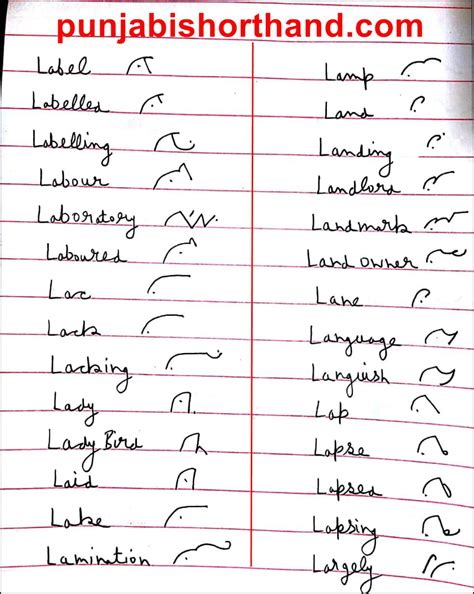 punjabishorthand.com
Label
Labelled
Labelling
Labour
Laboratory
Laboured
Lac
Lack
Lacking
Lady
Lady Bird
Laid
Lake
Lamination
Lamp
Land
Landing
Landlord
Landmark
Land owner
Lane
Language
Languish
Lap
Lapse
Lapsed
Lapsing
Largely